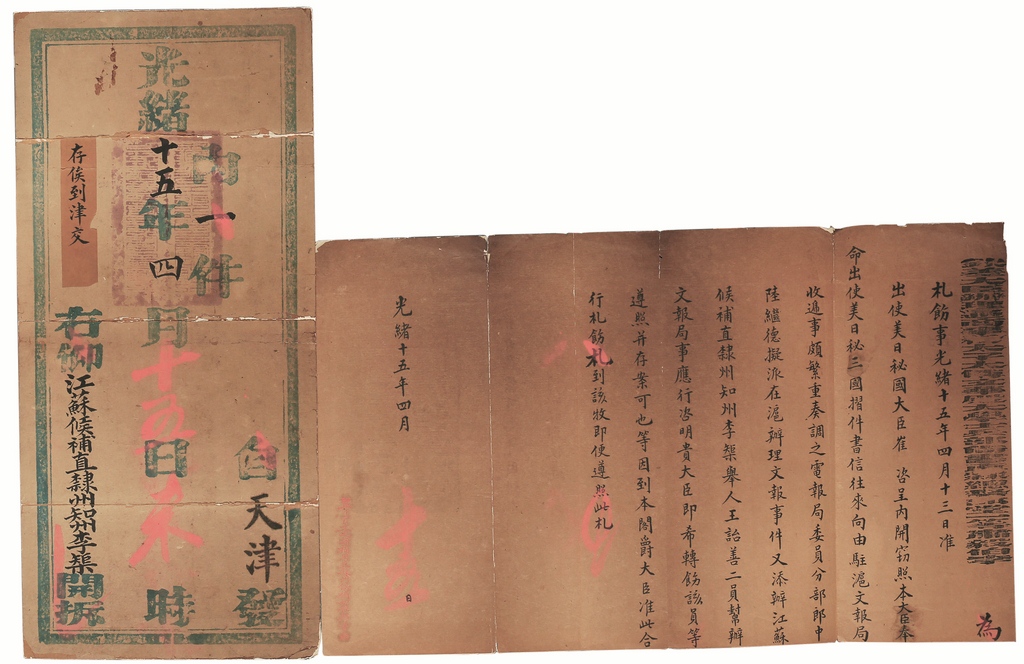 為
札飭事光緒十五年四月十三日准
出使美日秘國大臣崔 咨呈內開窃照本大臣奉
命出使美日秘三國摺件書信往來向由駐滬文報局
收遞事頗繁重奏調之電報局委員分部郎中
陸繼德擬派在滬辦理文報事件又添辦江蘇
候補直隸州知州李榘舉人王詒善二員幫辦
文報局事應行咨明貴大臣即希轉飭該員等
遵照并存案可也等因到本閣爵大臣准此合
行札飭札到該牧即便遵照此札
光緒十五年四月
日
自天津發
內一件
光緒十五年四月十五日 時
右仰江蘇候補直隸州知州李榘開拆
存俟到津交